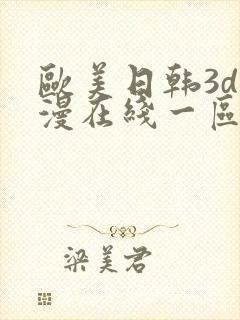 歐美日韩3d
漫在綫一區
梁美君